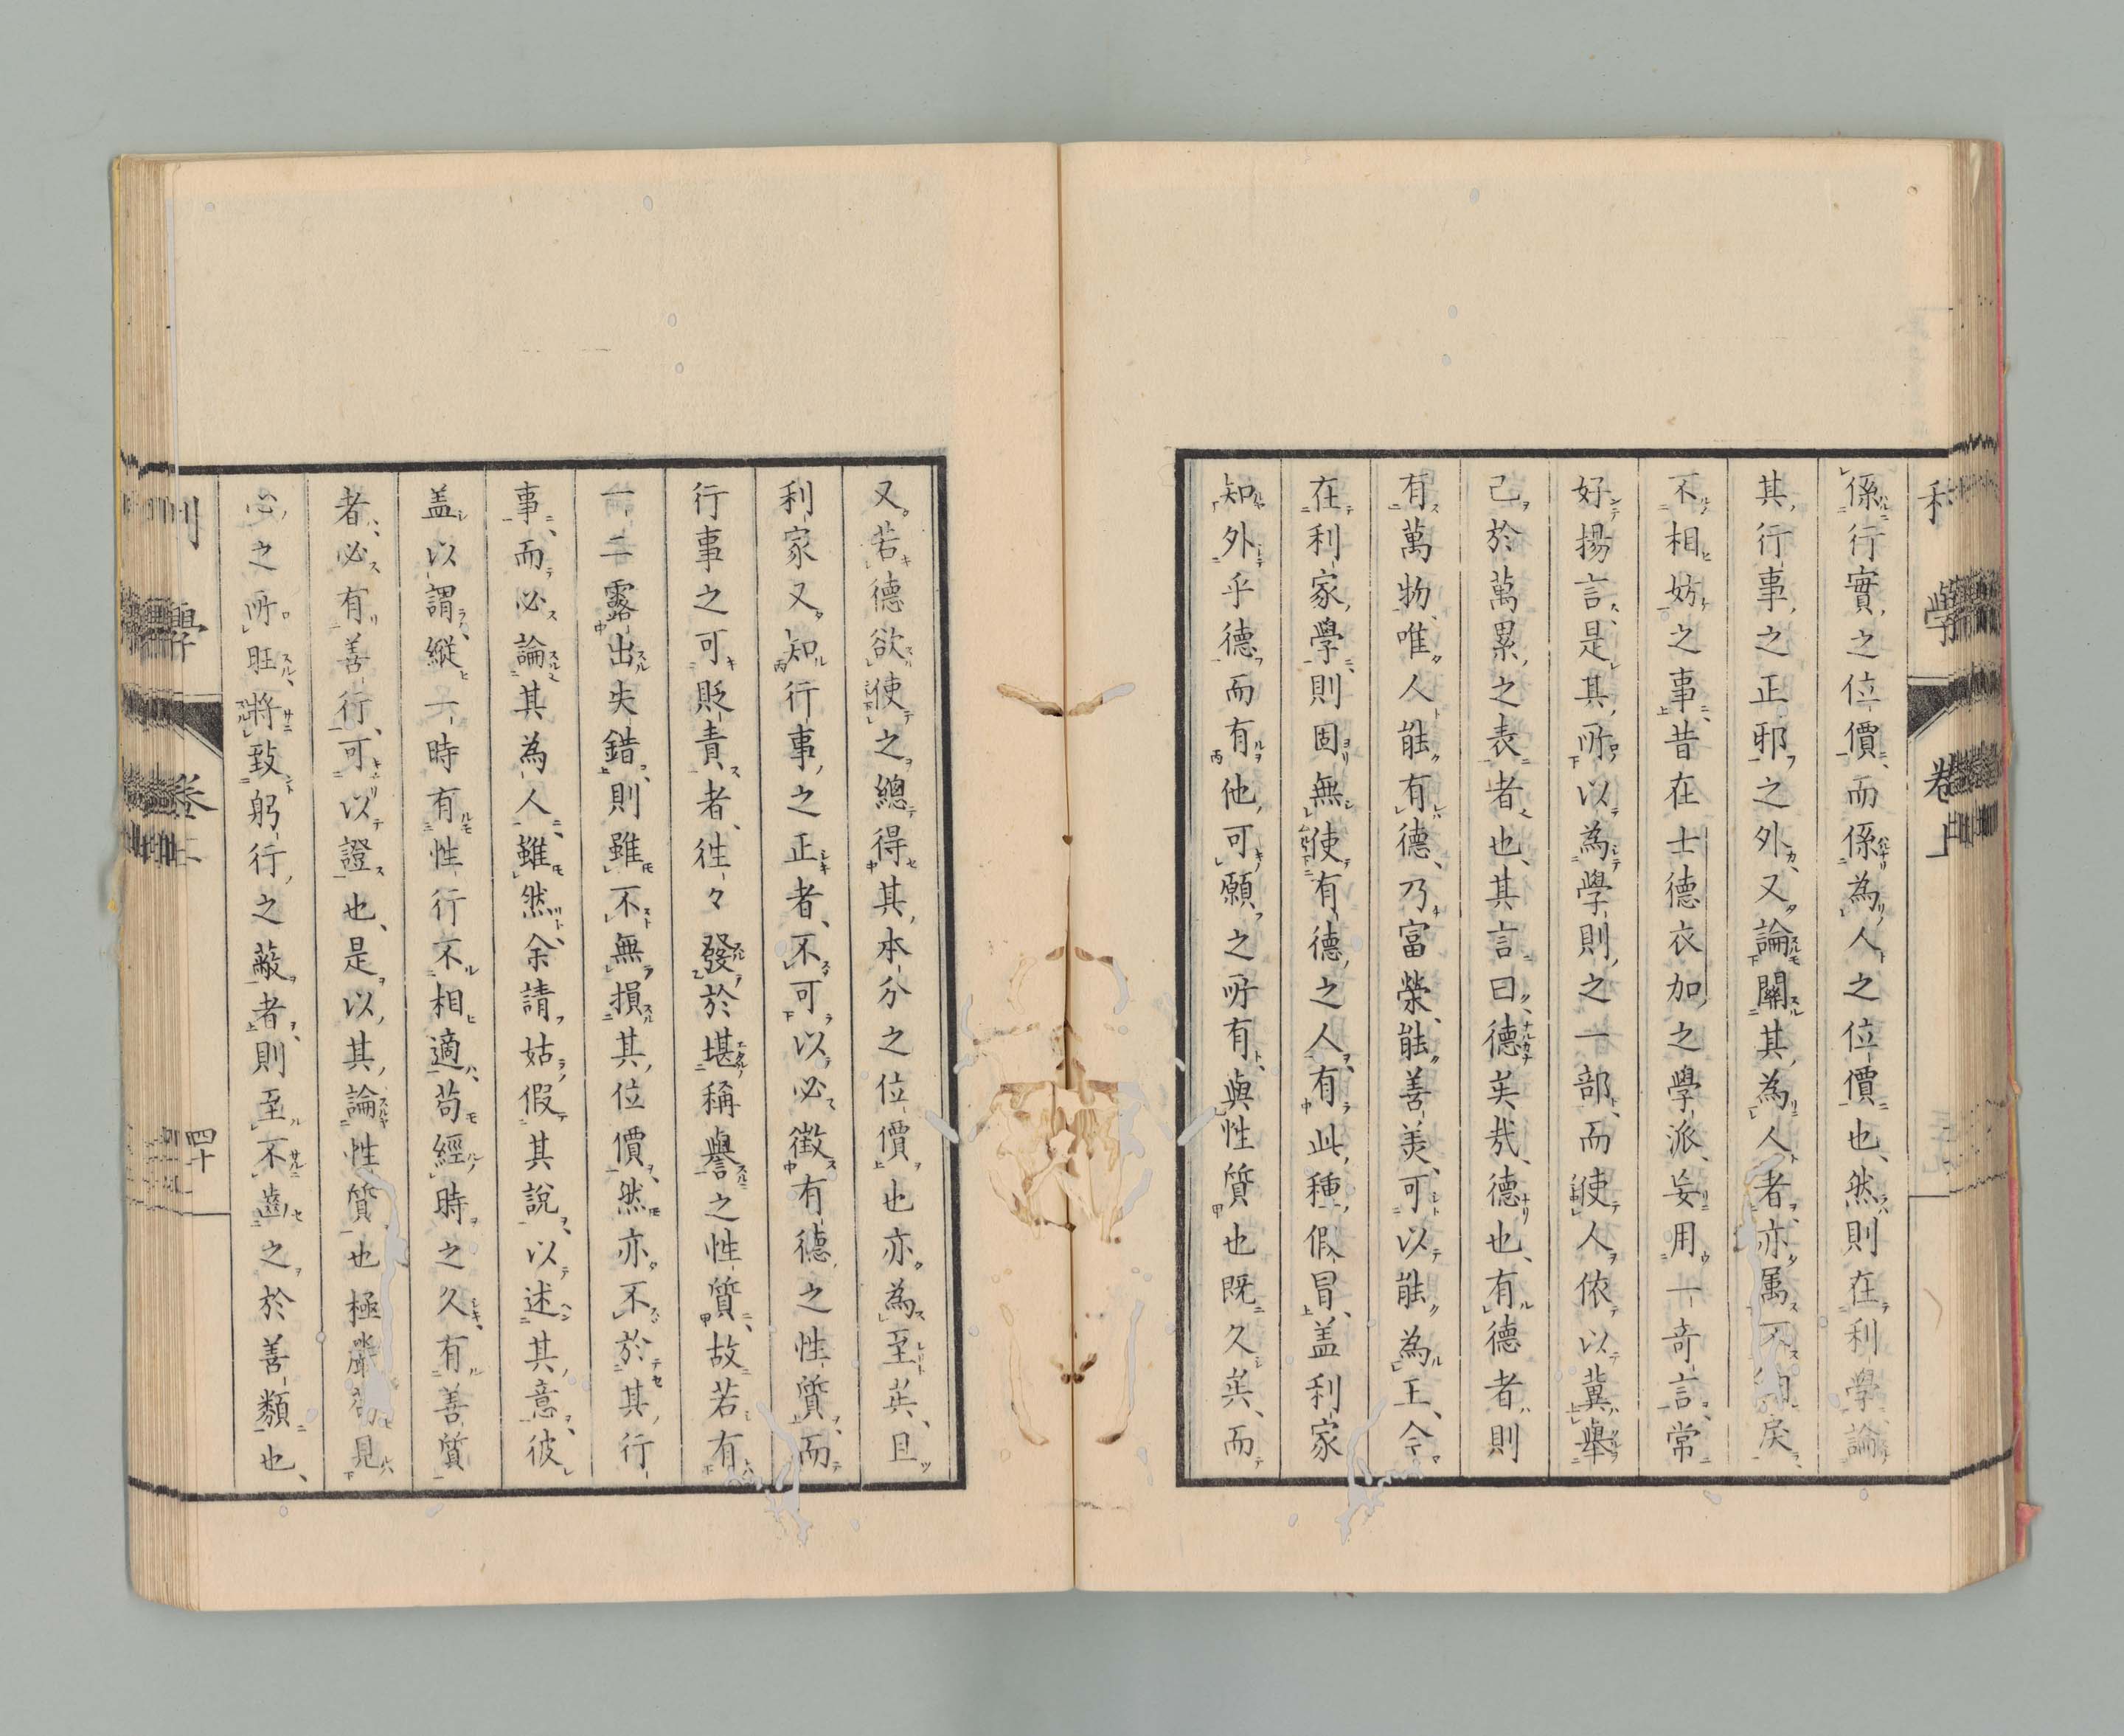 係行實之位價而係為人之位價也、然則在利學論
其行事之正邪之外又論關其為人者亦属不相戻
不相妨之事昔在士德衣加之學派妄用一奇言常
好揚言是其所以為學則之一部而使人依以冀舉
己於萬累之表者也、其言曰德矣哉、德也、有德者則
有萬物唯人能有德、乃富榮、能善美、可以能為王、今
在利家學則固無使有德之人有此種假冒、盖利家
知外乎德而有他可願之所有與性質也既久矣、而
又若德欲使之總得其本分之位價也亦為至矣、且
利家又知行事之正者、不可以必徵有德之性質而
行事之可貶責者、往々發於堪稱譽之性質、故若有
一二露出失錯則雖不無損其位價然亦不於其行
事而必論其為人雖然余請姑假其說以述其意、彼
盖以謂縱一時有性行不相適苟經時之久有善質
者必有善行、可以證也、是以其論性質也極嚴見
心之所旺將致躬行之蔽者則至不齒之於善類也、
利學 卷上 四十